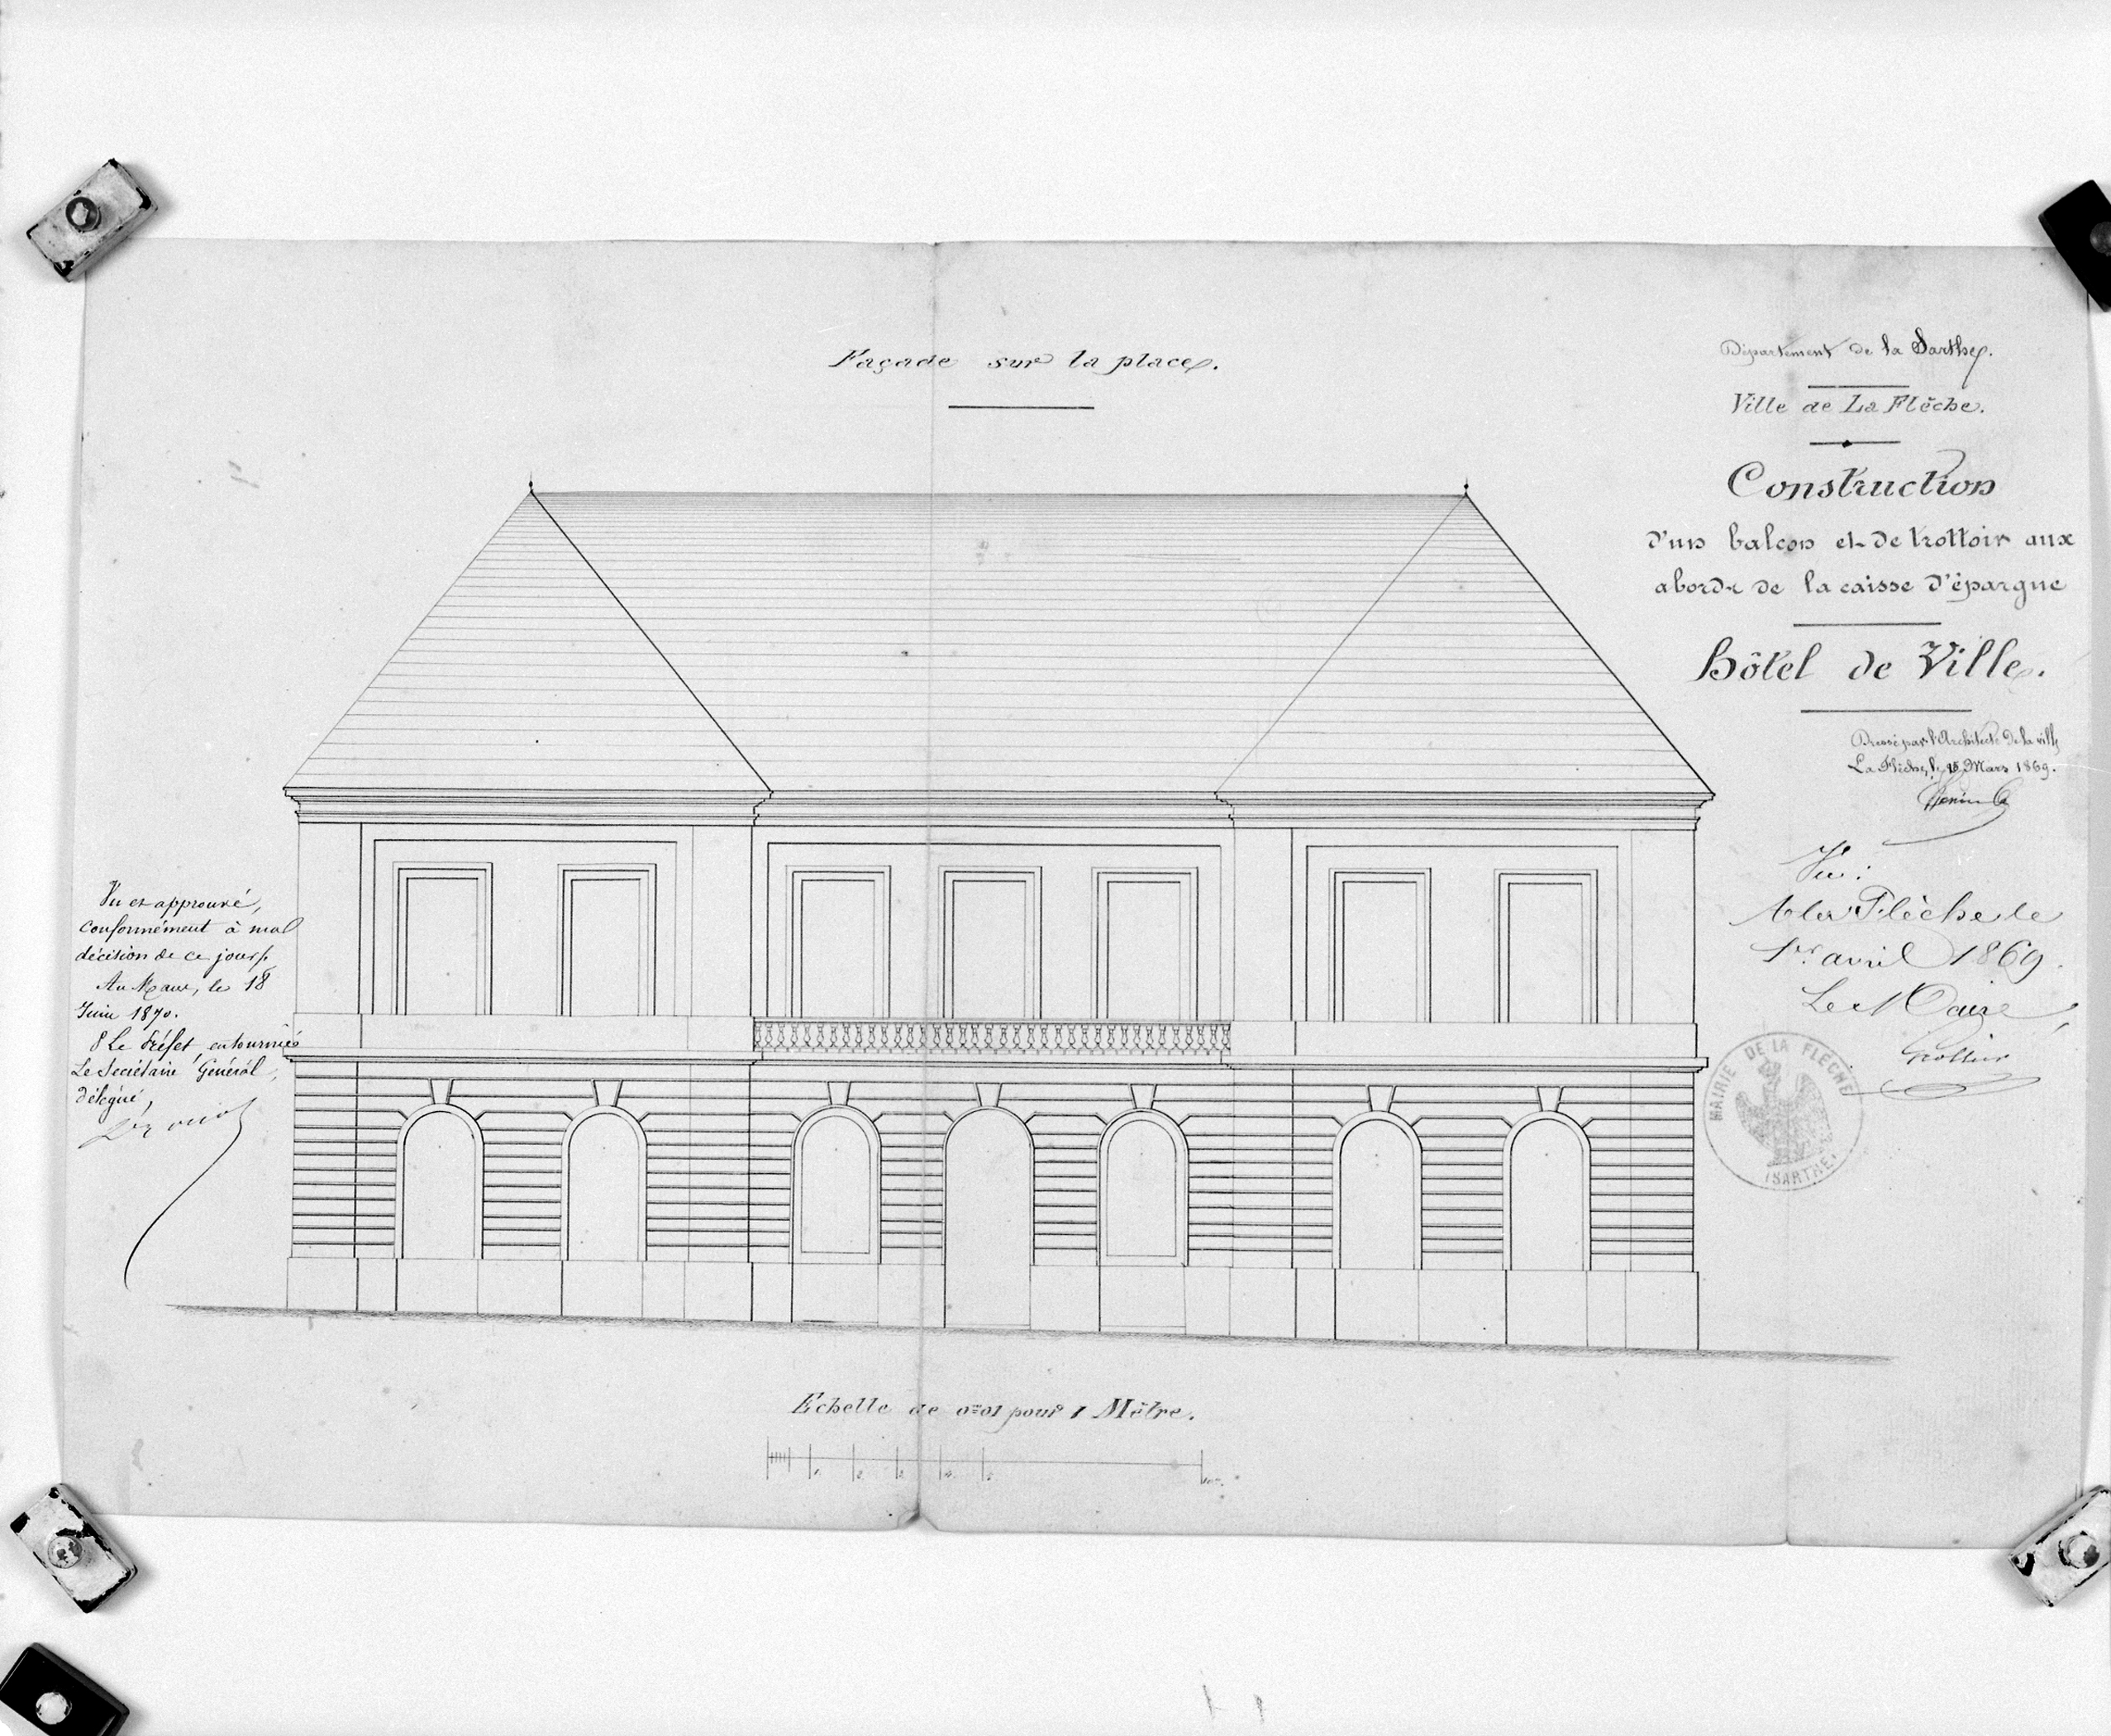 Façade sur la place.
Département de la Sarthe.
Ville de La Flèche.
Construction
d'un balcon et de trottoir aux
abords de la caisse d'épargne
Hôtel de Ville.
Dressé par l'Architecte de la ville
La Flèche, le 15 Mars 1869.
Vu:
A la Flèche le
1er avril 1869.
Le Maire,
Grollier
MAIRIE DE LA FLÈCHE
(SARTHE)
Vu et approuvé,
conformément à ma
décision de ce jour.
Au Mans, le 18
Juin 1870.
P. Le Préfet, en tournée
Le Secrétaire Général,
délégué,
Echelle de 0m01 pour 1 Mètre.
1 2 3 4 5 10m